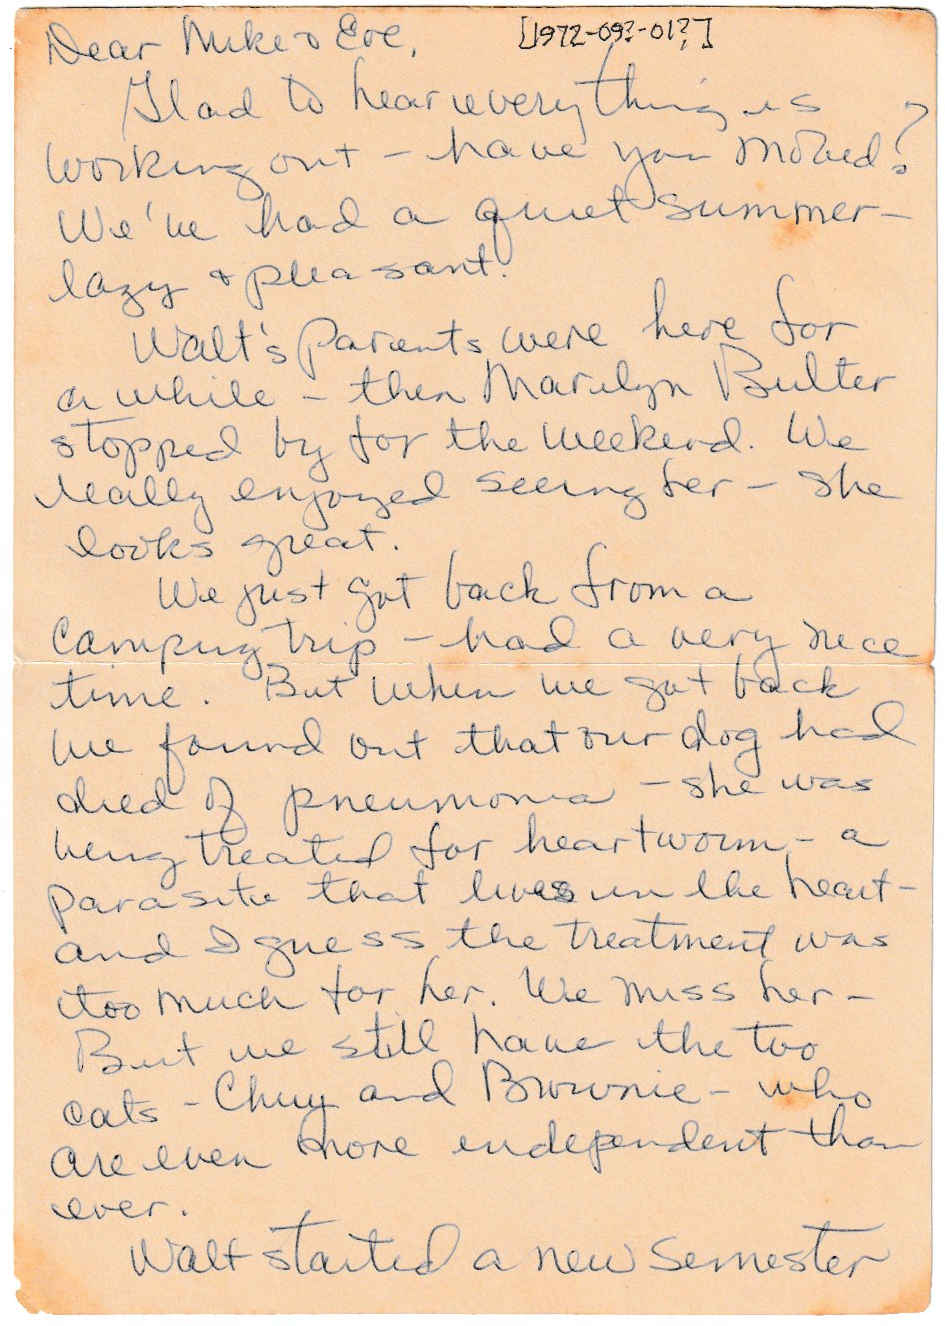 Dear Mike & Eve, [1972-09?-01?]
Glad to hear everything is
working out - have you moved?
We've had a quiet summer -
lazy & pleasant.
Walt's parents were here for
a while - then Marilyn Bulter
stopped by for the weekend. We
really enjoyed seeing her - she
looks great.
We just got back from a
camping trip - had a very nice
time. But when we got back
we found out that our dog had
died of pneumonia - she was
being treated for heartworm - a
parasite that lives in the heart -
and I guess the treatment was
too much for her. We miss her -
But we still have the two
cats - Chuy and Brownie - who
are even more independent than
ever.
Walt started a new semester